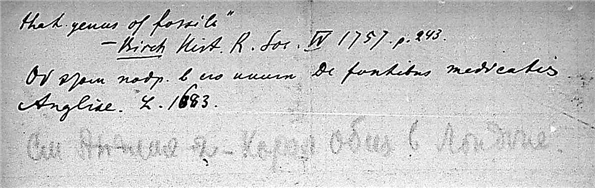 that genus of fossils"
— Birch Hist. R. Soc. IV 1757. p. 243.
Об этом подр. в его книге De fontibus medicatis
Angliae. L. 1683.
См Англия – Корол Общ в Лондоне.